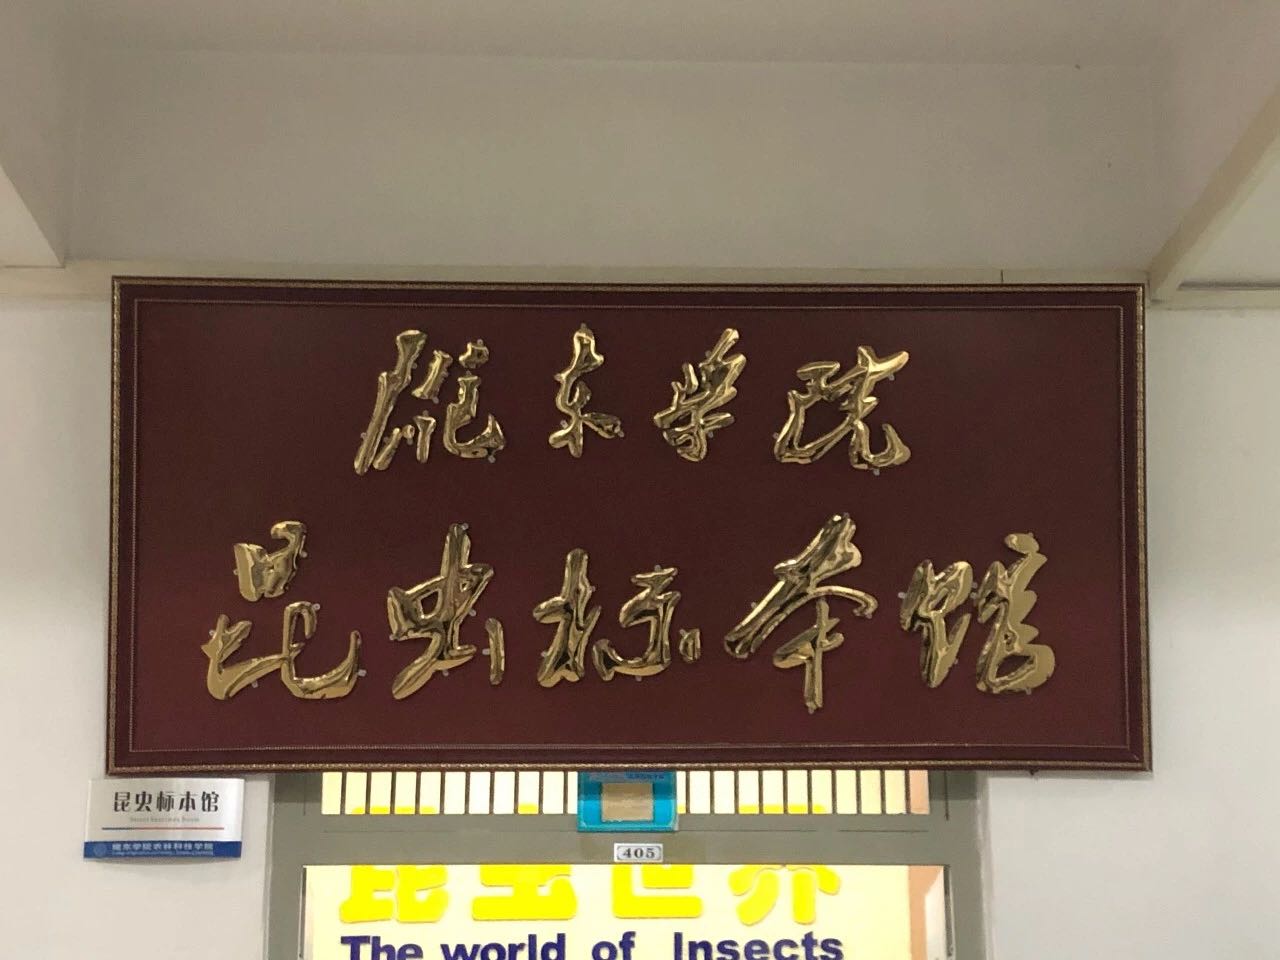 陇东学院
昆虫标本馆
昆虫标本馆
Insect Specimen Room
陇东学院农林科技学院
405
昆虫世界
The world of Insects